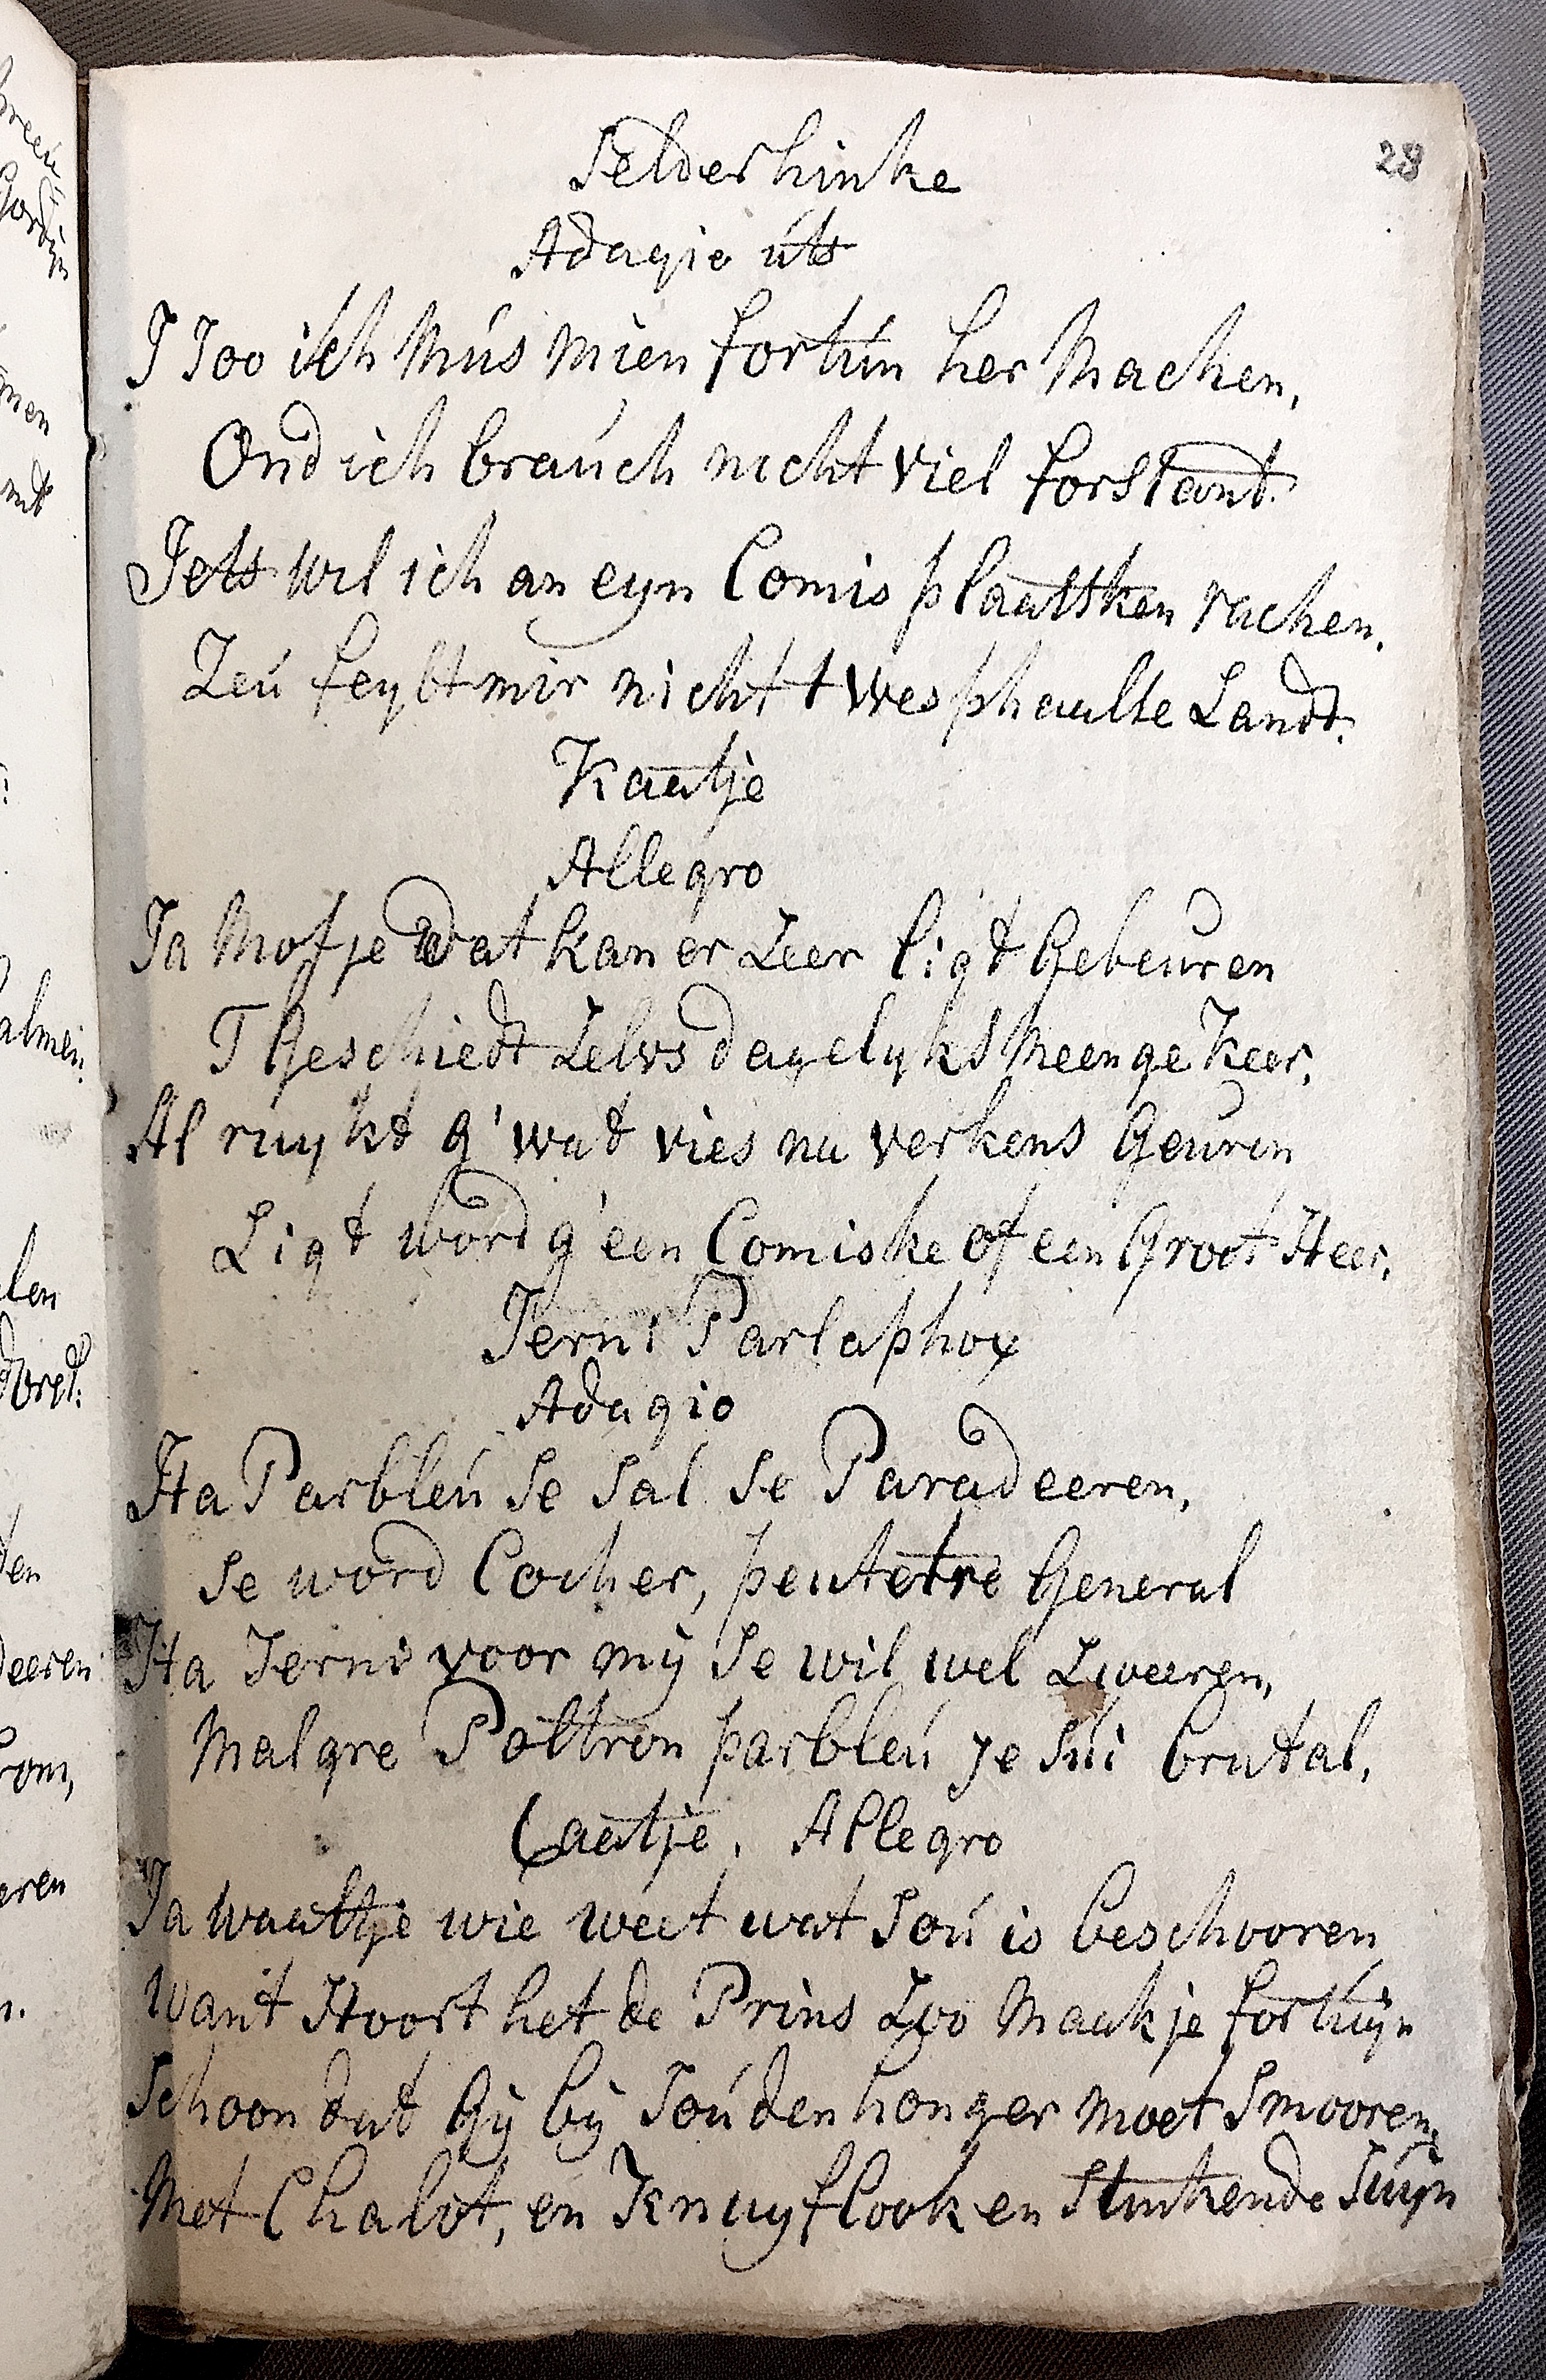 28
Selderhinke
Adagio uts
J Joo ich Mús mien fortún her Machen,
Ond ich braúch nicht viel forstant.
Jets wil ich an eyn Comis plaattken rachen,
Zeú feylt mir nicht t wesphaulse Landt.
Kaatje
Allegro
Ja Mofje dat kan er Zeer ligt Gebeuren
T Geschiedt Zelvs dagelyks Meenge Keer,
Al ruykt g' wat vies na verkens Geuren
Ligt word g' een Comiske of een Groot Heer,
Jerni Parlaphox
Adagio
Ha Parbleú Se Sal Se Paradeeren,
Se word Cocher, peutetre General
Ha Jerni voor mÿ Se wil wel Zweeren,
Malgre Poltron parbleú je Súi brutal,
Caatje, Allegro
Ja Waaltje wie weet wat Joú is beschooren
Want Hoort het de Prins Zoo Maakje fortúijn
Schoon dat Gÿ bÿ Joú den honger moet Smooren,
Met Chalot, en Knuyflook en Stinkende Juyn